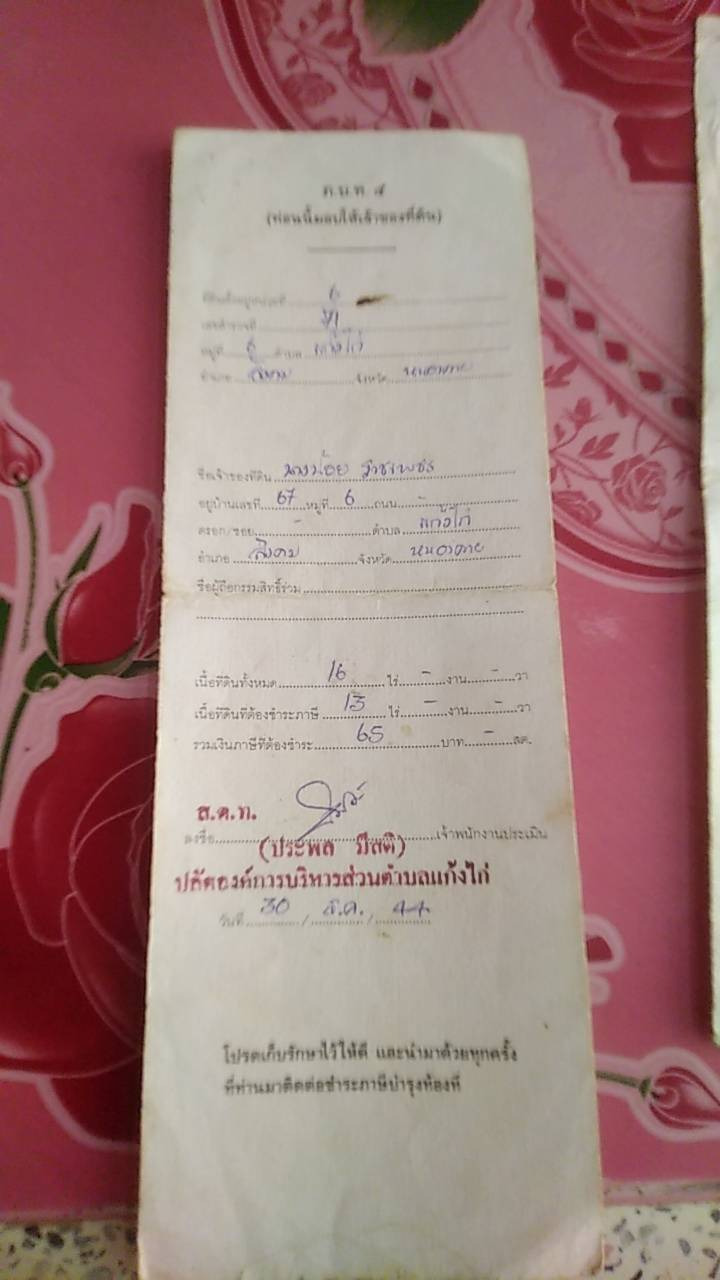 ภ.บ.ท. ๕
(ท่อนนี้มอบให้เจ้าของที่ดิน)
6
หมู่ที่ 6 ตำบล แก้งไก่
อำเภอ สังคม จังหวัด หนองคาย
ชื่อเจ้าของที่ดิน นางน้อย
อยู่บ้านเลขที่ 67 หมู่ที่ 6 ถนน -
ตรอก/ซอย - ตำบล แก้งไก่
อำเภอ สังคม จังหวัด หนองคาย
ชื่อผู้ถือกรรมสิทธิ์ร่วม
เนื้อที่ดินทั้งหมด 16 ไร่ - งาน - วา
เนื้อที่ดินที่ต้องชำระภาษี 13 ไร่ - งาน - วา
รวมเงินภาษีที่ต้องชำระ 65 บาท - สต.
ส.ต.ท.
ลงชื่อ เจ้าพนักงานประเมิน
(ประพล มีสติ)
ปลัดองค์การบริหารส่วนตำบลแก้งไก่
วันที่ 30 / / 44
โปรดเก็บรักษาไว้ให้ดี และนำมาด้วยทุกครั้ง
ที่ท่านมาติดต่อชำระภาษีบำรุงท้องที่